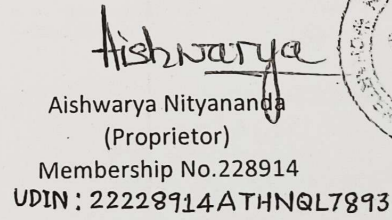 Aishwarya
Aishwarya Nityananda
(Proprietor)
Membership No.228914
UDIN : 22228914ATHNQL7893